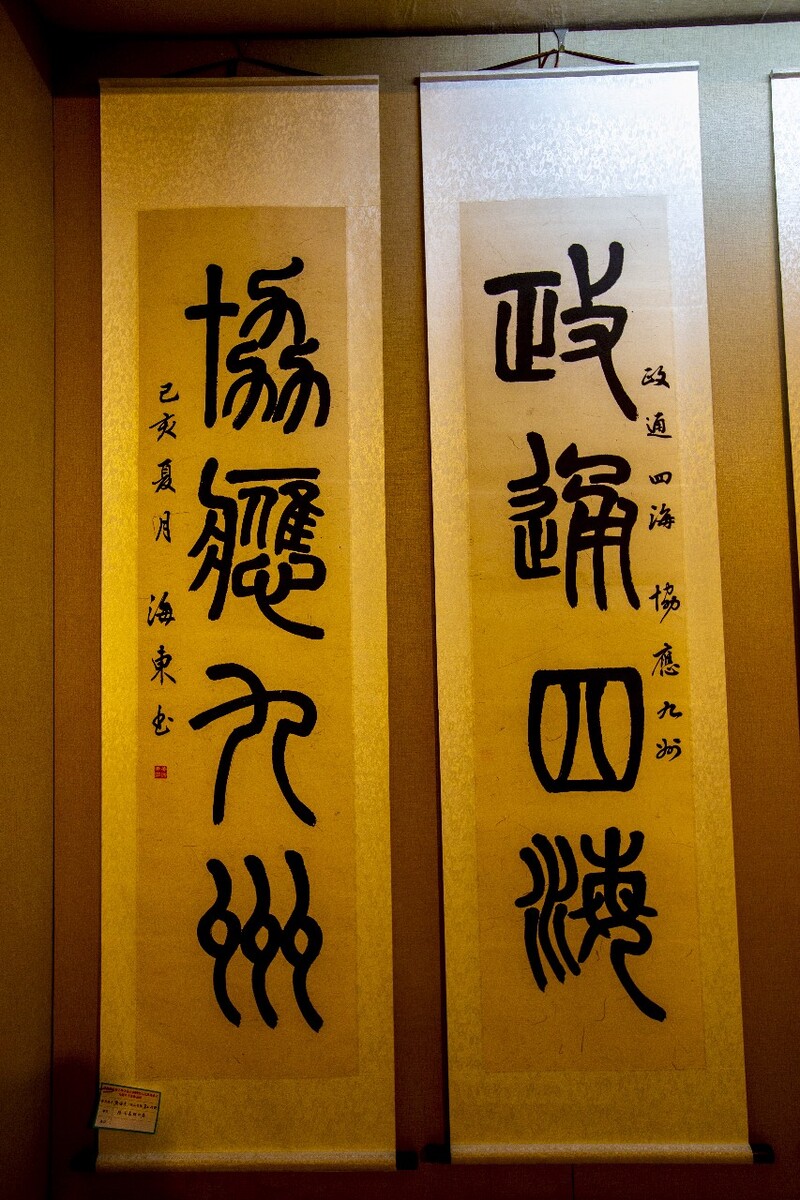 政通四海
政通四海 協應九州
協應九州
己亥夏月 海東書